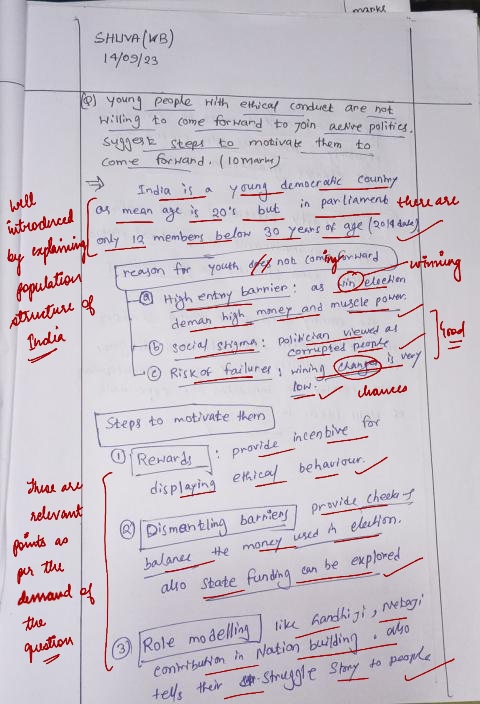 marks
SHUVA(WB)
14/09/23
(Q) Young people with ethical conduct are not
willing to come forward to join active politics.
suggest steps to motivate them to
come forward. (10 marks)
→ India is a young democratic country
as mean age is 20's. but in parliament there are
only 12 members below 30 years of age (2019 data)
Well
introduced
by explaining
population
structure of
India
reason for youth does not coming forward
(a) High entry barrier: as win election
winning
deman high money and muscle power.
(b) social stigma: politician viewed as
corrupted people
(c) Risk of failures; wining changes is very
low.
chances
Good
Steps to motivate them
① Rewards : provide incentive for
displaying ethical behaviour.
② Dismantling barriers provide check &
balance the money used in election.
also state funding can be explored
③ Role modelling like Gandhiji, Netaji
contribution in Nation building. also
tells their struggle story to people
These are
relevant
points as
per the
demand of
the
question